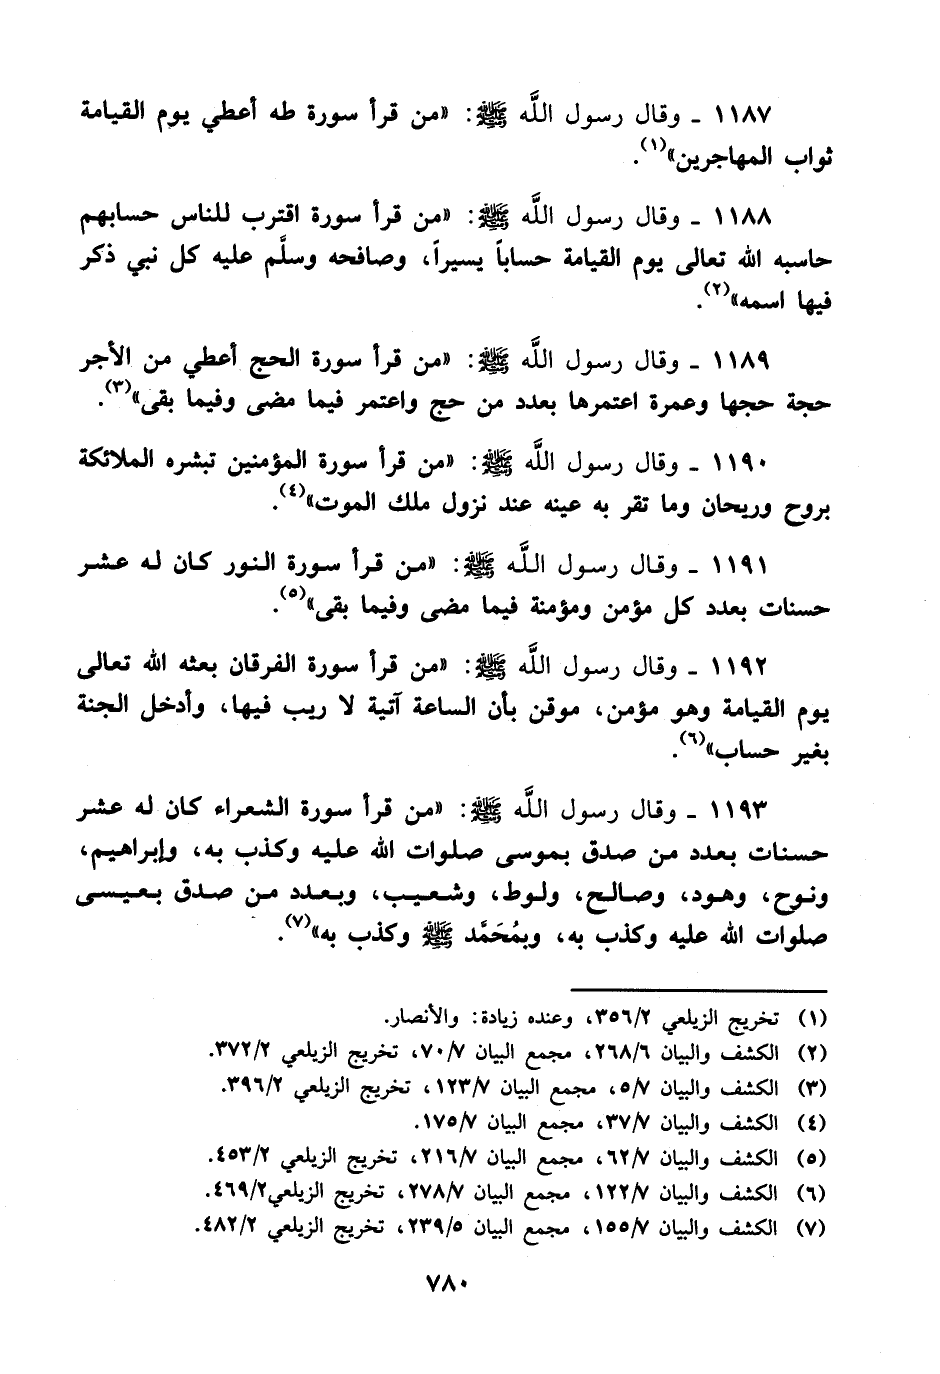 ١١٨٧ ـ وقال رسول اللَّه ﷺ: «من قرأ سورة طه أعطي يوم القيامة
ثواب المهاجرين»(١).
١١٨٨ ـ وقال رسول اللَّه ﷺ: «من قرأ سورة اقترب للناس حسابهم
حاسبه الله تعالى يوم القيامة حساباً يسيراً، وصافحه وسلَّم عليه كل نبي ذكر
فيها اسمه»(٢).
١١٨٩ ـ وقال رسول اللَّه ﷺ: «من قرأ سورة الحج أعطي من الأجر
حجة حجها وعمرة اعتمرها بعدد من حج واعتمر فيما مضى وفيما بقى»(٣).
١١٩٠ ـ وقال رسول اللَّه ﷺ: «من قرأ سورة المؤمنين تبشره الملائكة
بروح وريحان وما تقر به عينه عند نزول ملك الموت»(٤).
١١٩١ ـ وقال رسول اللَّه ﷺ: «من قرأ سورة النور كان له عشر
حسنات بعدد كل مؤمن ومؤمنة فيما مضى وفيما بقى»(٥).
١١٩٢ ـ وقال رسول اللَّه ﷺ: «من قرأ سورة الفرقان بعثه الله تعالى
يوم القيامة وهو مؤمن، موقن بأن الساعة آتية لا ريب فيها، وأدخل الجنة
بغير حساب»(٦).
١١٩٣ ـ وقال رسول اللَّه ﷺ: «من قرأ سورة الشعراء كان له عشر
حسنات بعدد من صدق بموسى صلوات الله عليه وكذب به، وإبراهيم،
ونوح، وهود، وصالح، ولوط، وشعيب، وبعدد من صدق بعيسى
صلوات الله عليه وكذب به، وبمُحَمَّد ﷺ وكذب به»(٧).
(١) تخريج الزيلعي ٣٥٦/٢، وعنده زيادة: والأنصار.
(٢) الكشف والبيان ٢٦٨/٦، مجمع البيان ٧٠/٧، تخريج الزيلعي ٣٧٢/٢.
(٣) الكشف والبيان ٥/٧، مجمع البيان ١٢٣/٧، تخريج الزيلعي ٣٩٦/٢.
(٤) الكشف والبيان ٣٧/٧، مجمع البيان ١٧٥/٧.
(٥) الكشف والبيان ٦٢/٧، مجمع البيان ٢١٦/٧، تخريج الزيلعي ٤٥٣/٢.
(٦) الكشف والبيان ١٢٢/٧، مجمع البيان ٢٧٨/٧، تخريج الزيلعي٤٦٩/٢.
(٧) الكشف والبيان ١٥٥/٧، مجمع البيان ٢٣٩/٥، تخريج الزيلعي ٤٨٢/٢.
٧٨٠